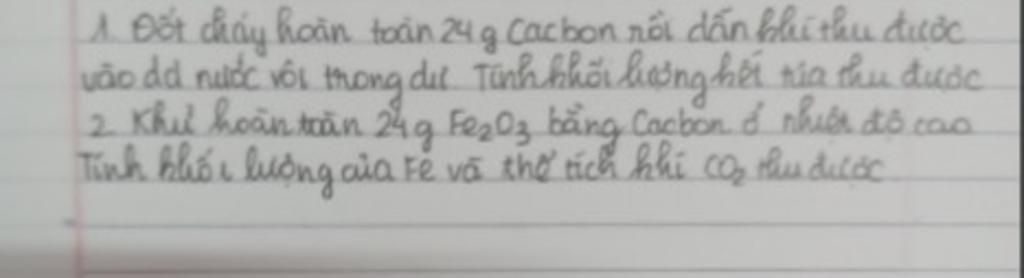 1. Đốt cháy hoàn toàn 24 g Cacbon rồi dẫn khí thu được
vào dd nước vôi trong dư. Tính khối lượng kết tủa thu được
2. Khử hoàn toàn 24 g Fe2O3 bằng Cacbon ở nhiệt độ cao
Tính khối lượng của Fe và thể tích khí CO2 thu được.